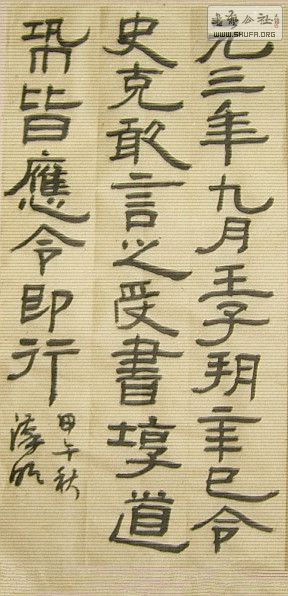 元三年九月壬子朔辛巳令
史克敢言之受書埻道
皆應令即行
甲午秋
書法公社
WWW.SHUFA.ORG